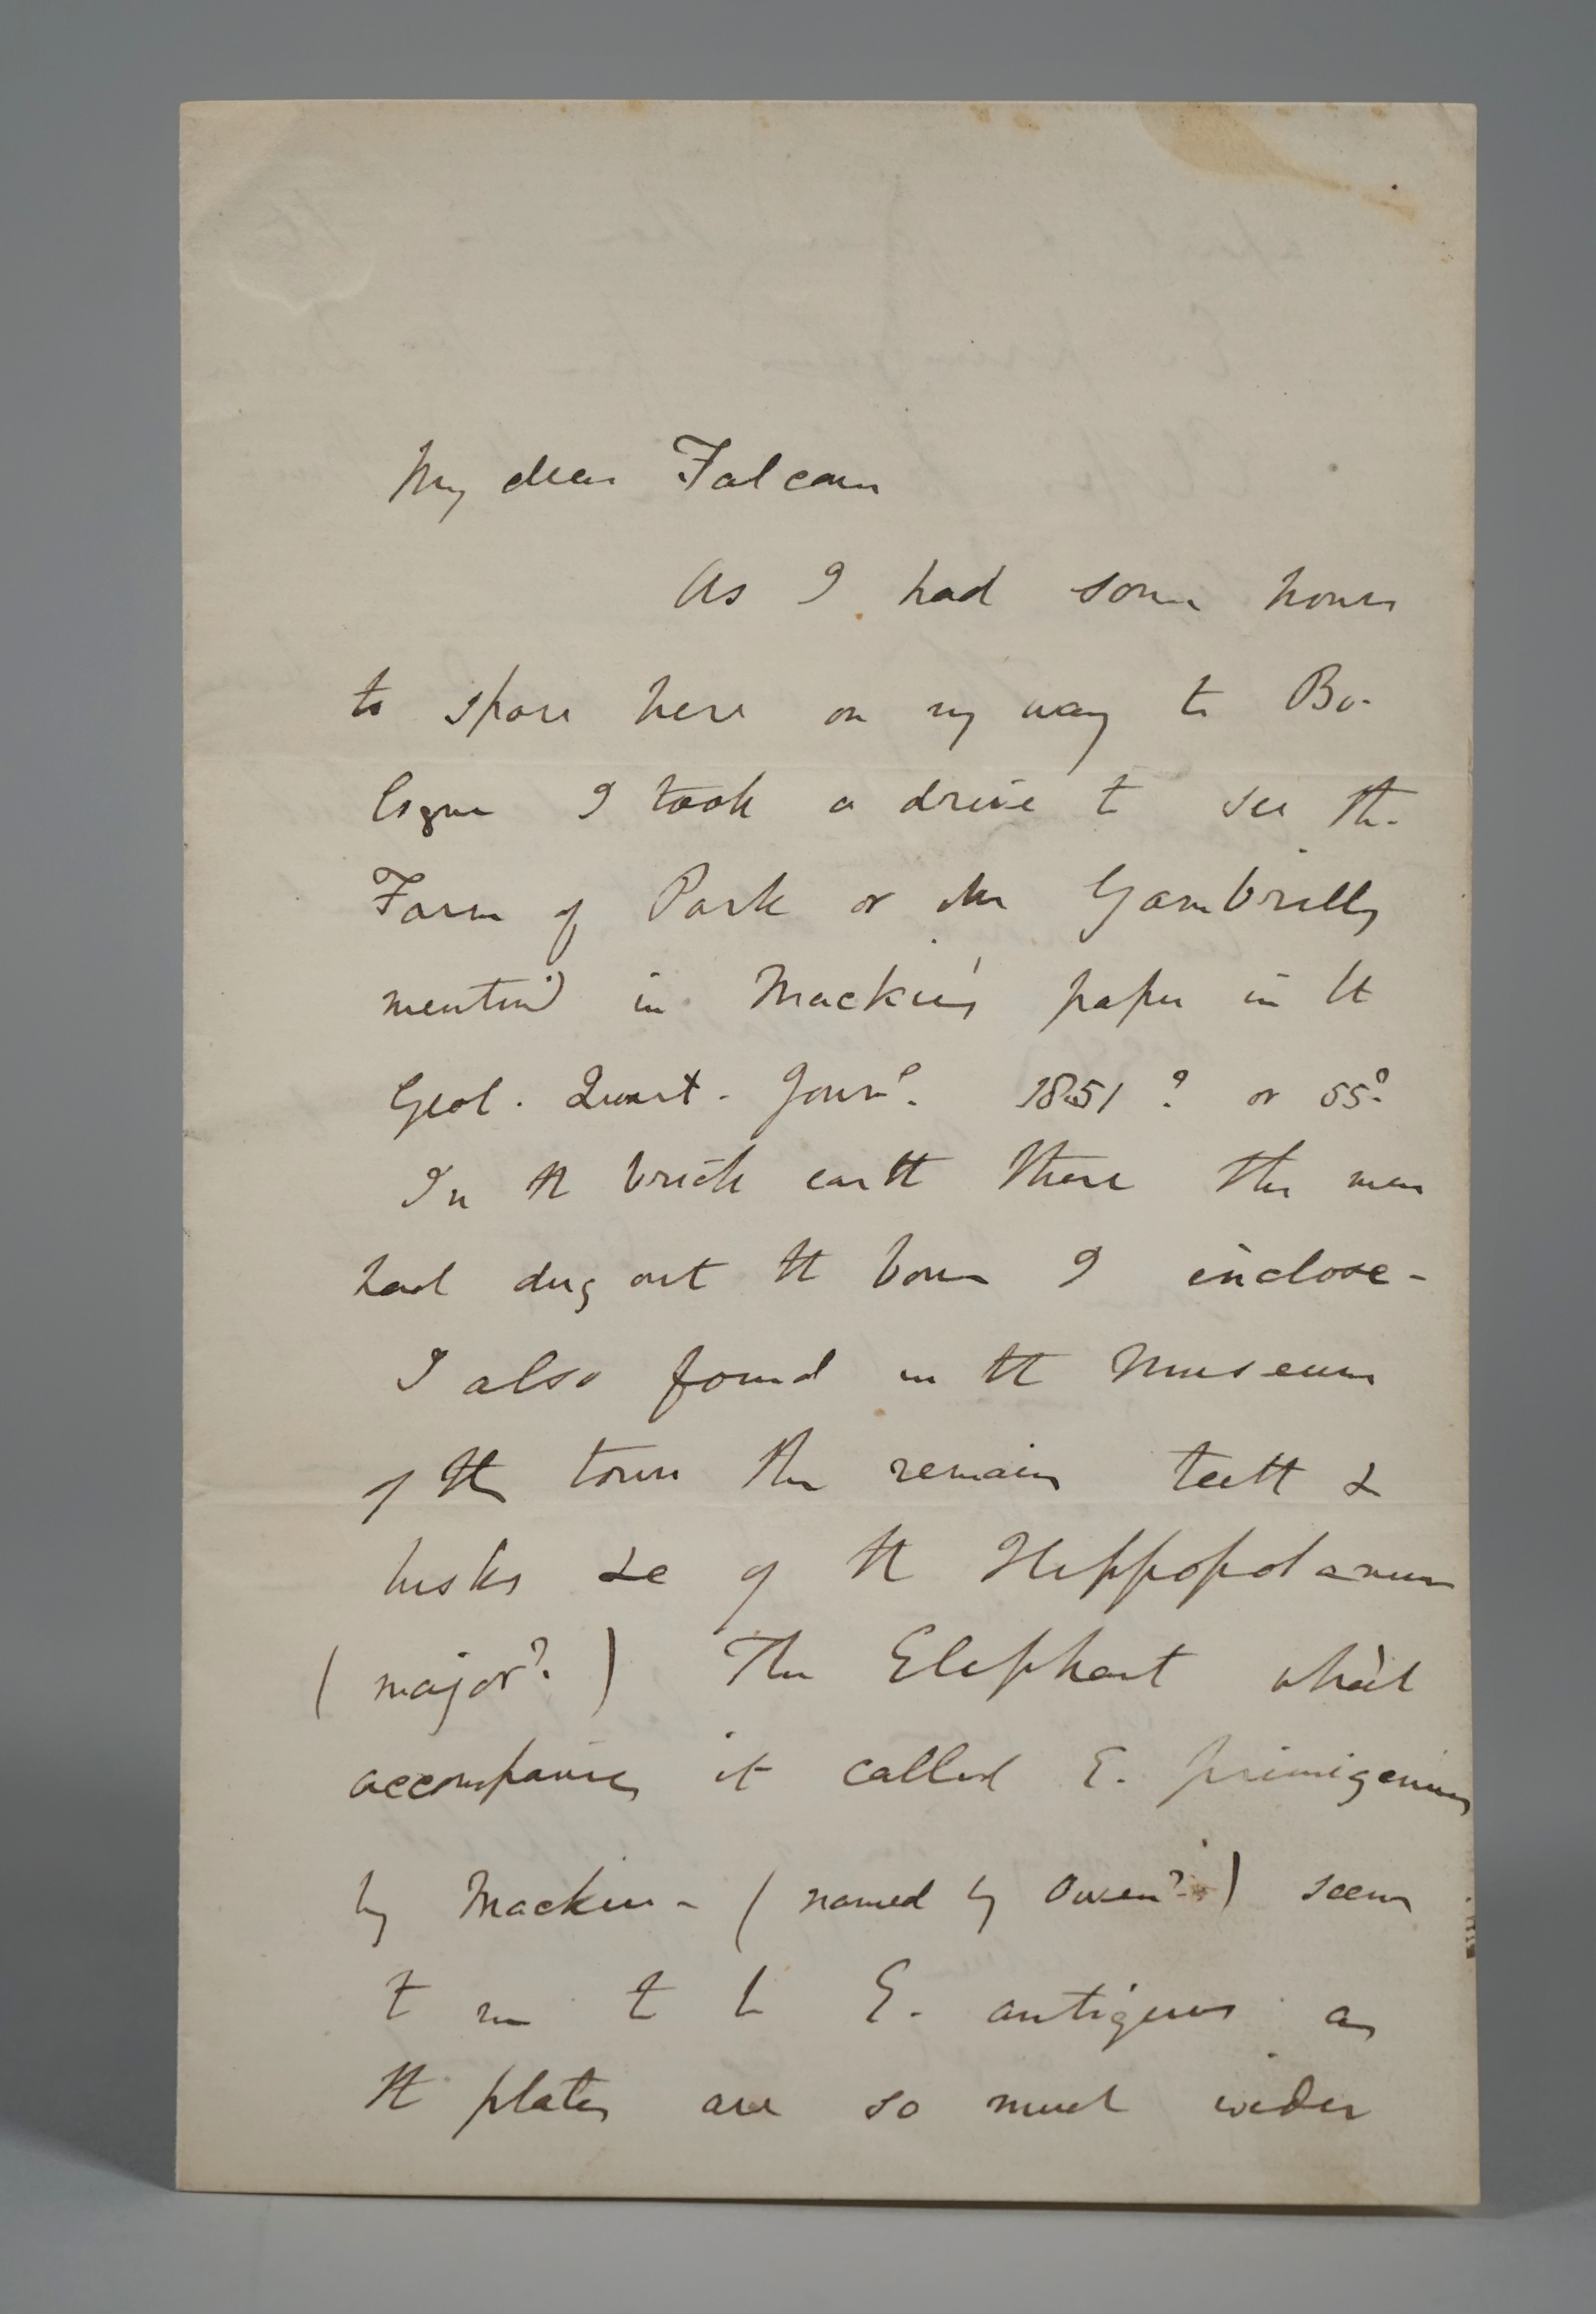 My dear Falconer
As I had some hours
to spare here on my way to Bo-
logne I took a drive to see the
Farm of Park or Mr Gambrills
mentiond in Mackie's paper in the
Geol. Quart. Journl. 1851? or 55?
In the brick earth there the men
had dug out the bone I inclose -
I also found in the Museum
of the town the remains teeth &
tusks &c of the Hippopotamus
(major?) The Elephant which
accompanies it called E. primigenius
by Mackie - (named by Owen?) seems
to me to be E. antiquus as
the plates are so much wider